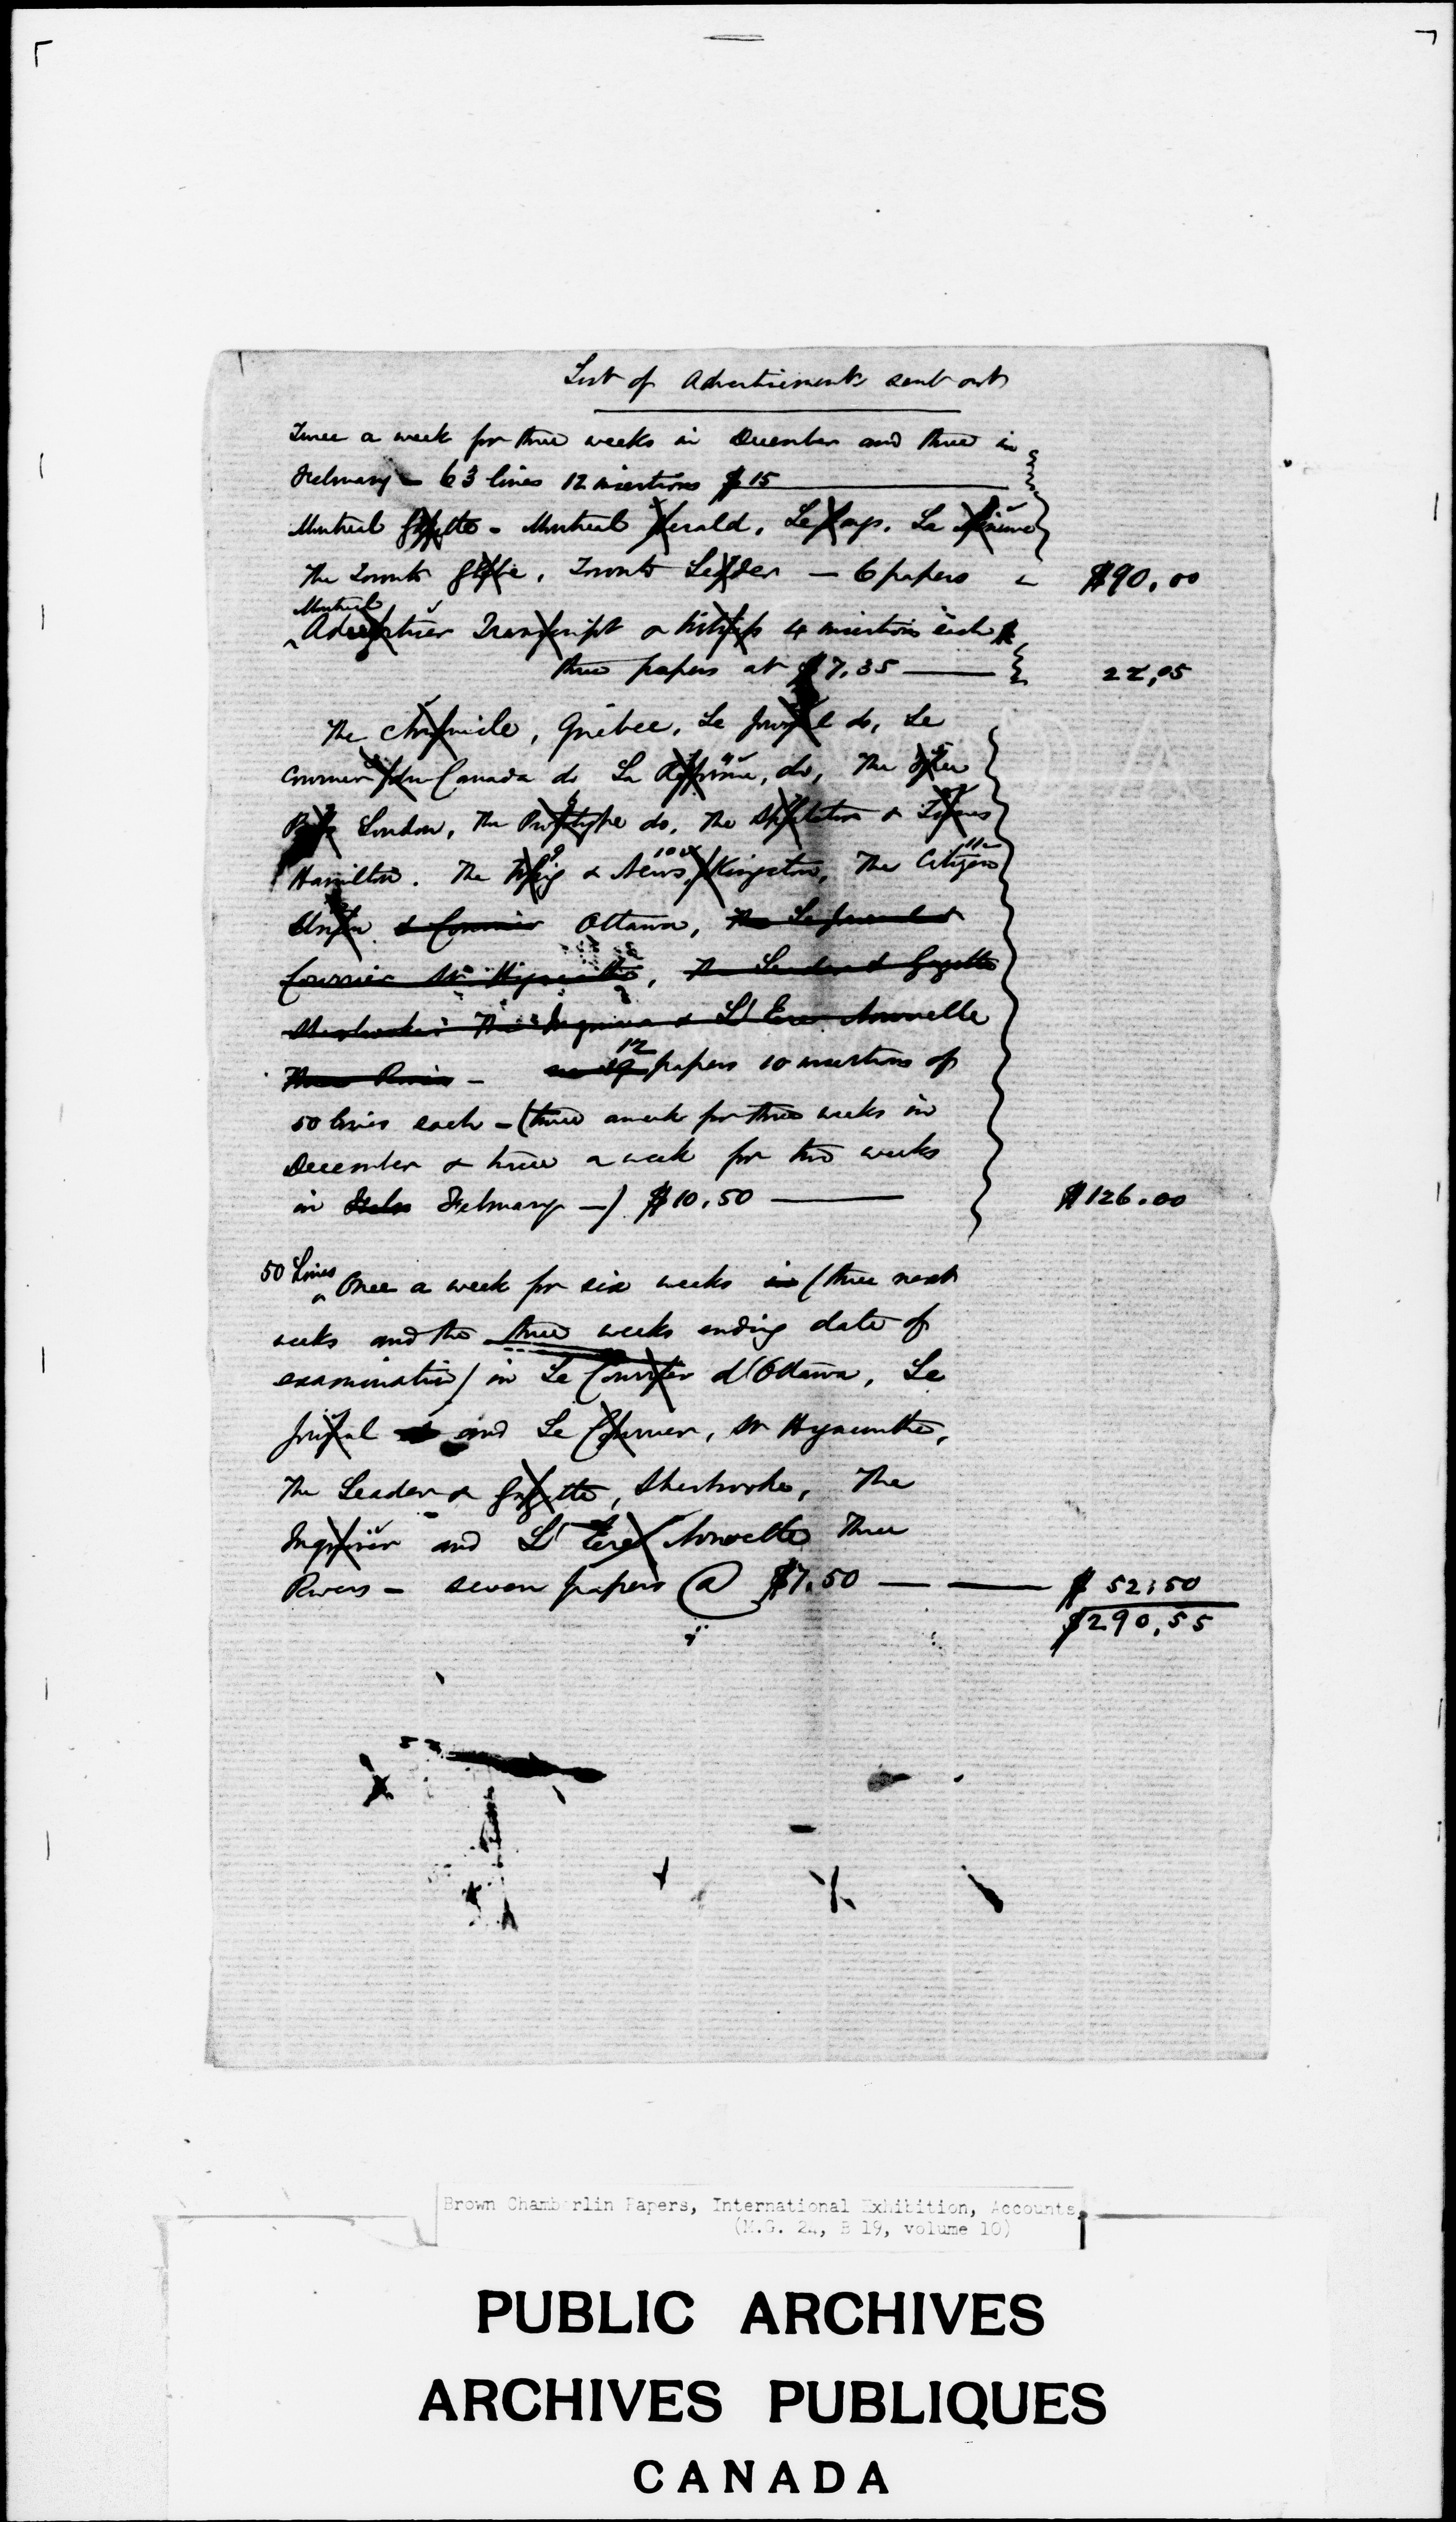 List of Advertisements sent out
Twice a week for three weeks in December and three in
February - 63 lines 12 insertions $15
Montreal Gazette - Montreal Herald, Le Pays, La Minerve
The Toronto Globe, Toronto Leader - 6 papers - $90.00
Montreal
Advertiser Transcript & Witness 4 insertions each
three papers at $7.35 22.05
The Chronicle, Quebec, Le Journal do, Le
Courrier du Canada do La Réforme, do, The Free
Press London, The Prototype do, The Spectator & Times
9 10 11
Hamilton. The Whig & News, Kingston, The Citizen
Union & Courrier Ottawa, The Le Journal &
Courrier St Hyacinthe, The Leader & Gazette
Sherbrooke. The Inquirer & L'Ere Nouvelle
Three Rivers -
12
papers 10 insertions of
50 lines each - (twice a week for three weeks in
December & twice a week for two weeks
in February -) $10.50 $126.00
50 lines
Once a week for six weeks in (three next
weeks and the three weeks ending date of
examination) in Le Courrier d'Ottawa, Le
Journal and Le Courrier, St Hyacinthe,
The Leader & Gazette, Sherbrooke, The
Inquirer and L'Ere Nouvelle Three
Rivers - seven papers @ $7.50 $52.50
$290.55
Brown Chamberlin Papers, International Exhibition, Accounts,
(M.G. 24, B 19, volume 10)
PUBLIC ARCHIVES
ARCHIVES PUBLIQUES
CANADA